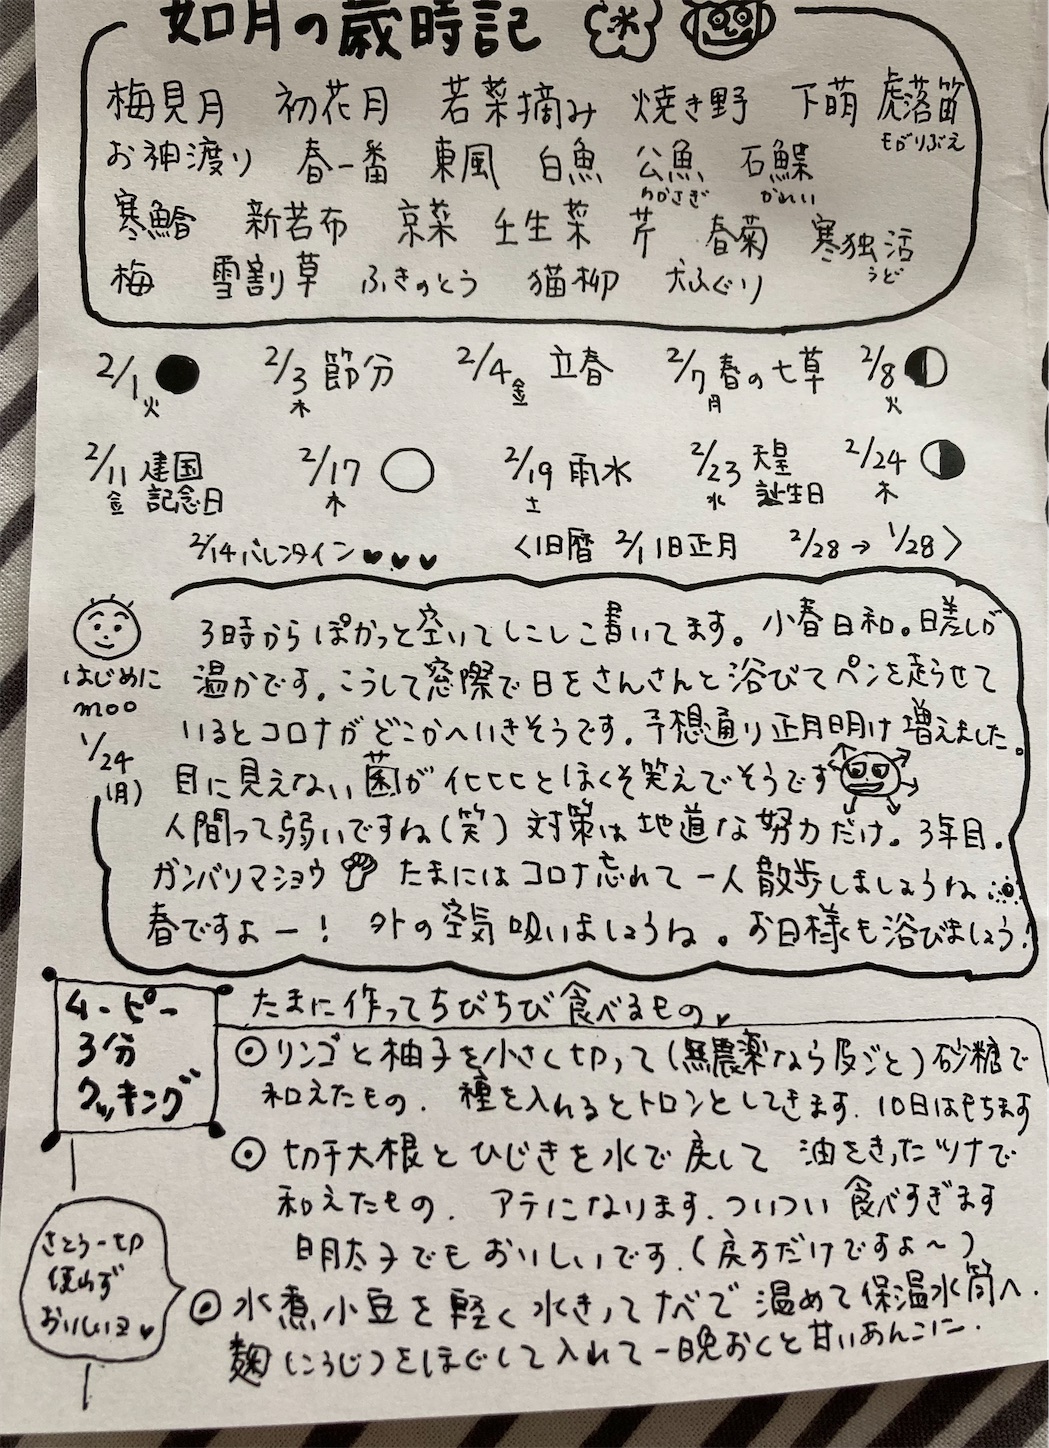 如月の歳時記
梅見月 初花月 若菜摘み 焼き野 下萌 虎落笛
もがりぶえ
お神渡り 春一番 東風 白魚 公魚 石鰈
わかさぎ かれい
寒鮨 新若布 京菜 壬生菜 芹 春菊 寒独活
うど
梅 雪割草 ふきのとう 猫柳 犬ふぐり
2/1 火 2/3 木 節分 2/4 金 立春 2/7 月 春の七草 2/8 火
2/11 金 建国記念日 2/17 木 2/19 土 雨水 2/23 水 天皇誕生日 2/24 木
2/14 バレンタイン <旧暦 2/1 旧正月 2/28→1/28>
はじめに
moo
1/24
(月)
3時からぽかっと空いてしこしこ書いてます。小春日和。日差しが
温かです。こうして窓際で日をさんさんと浴びてペンを走らせて
いるとコロナがどこかへいきそうです。予想通り正月明け増えました。
目に見えない菌がヒヒヒとほくそ笑えでそうです
人間って弱いですね(笑) 対策は地道な努力だけ。3年目。
ガンバリマショウ たまにはコロナ忘れて一人散歩しましょうね
春ですよー! 外の空気吸いましょうね。お日様も浴びましょう!
ムーピー
3分
クッキング
たまに作ってちびちび食べるもの
◎リンゴと柚子を小さく切って(無農薬なら皮ごと)砂糖で
和えたもの. 種を入れるとトロンとしてきます. 10日はもちます
◎切干大根とひじきを水で戻して 油をきったツナで
和えたもの. アテになります. ついつい食べすぎます
明太子でもおいしいです.(戻すだけですよ~)
◎水煮小豆を軽く水きってナベで温めて保温水筒へ.
麹(こうじ)をほぐして入れて一晩おくと甘いあんこに.
さとう一切
使わず
おいしいヨ